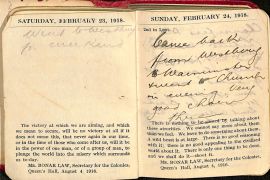 SATURDAY, FEBRUARY 23, 1918.
went to Westbury
for weekend
The victory at which we are aiming, and which
we mean to secure, will be no victory at all if it
does not ensure this, that never again in our time,
or in the time of those who come after us, will it be
in the power of one man, or of a group of man, to
plunge the world into the misery which surrounds
us to-day.
Mr. BONAR LAW, Secretary for the Colonies,
Queen's Hall, August 4, 1916.
SUNDAY, FEBRUARY 24, 1918.
2nd in Lent.
Came back
from Westbury
to Warminster
went to Church
in evening. Very
good
There is nothing to be gained by talking about
these atrocities. We cannot do more about them
than we feel. To no one do they come home
with so large a There is no good
with it; there is no good appealing to the civilized
world about it. There is only one thing to be done,
and we shall do it—
Mr. BONAR LAW, Secretary for the Colonies,
Queen's Hall, August 4, 1916.